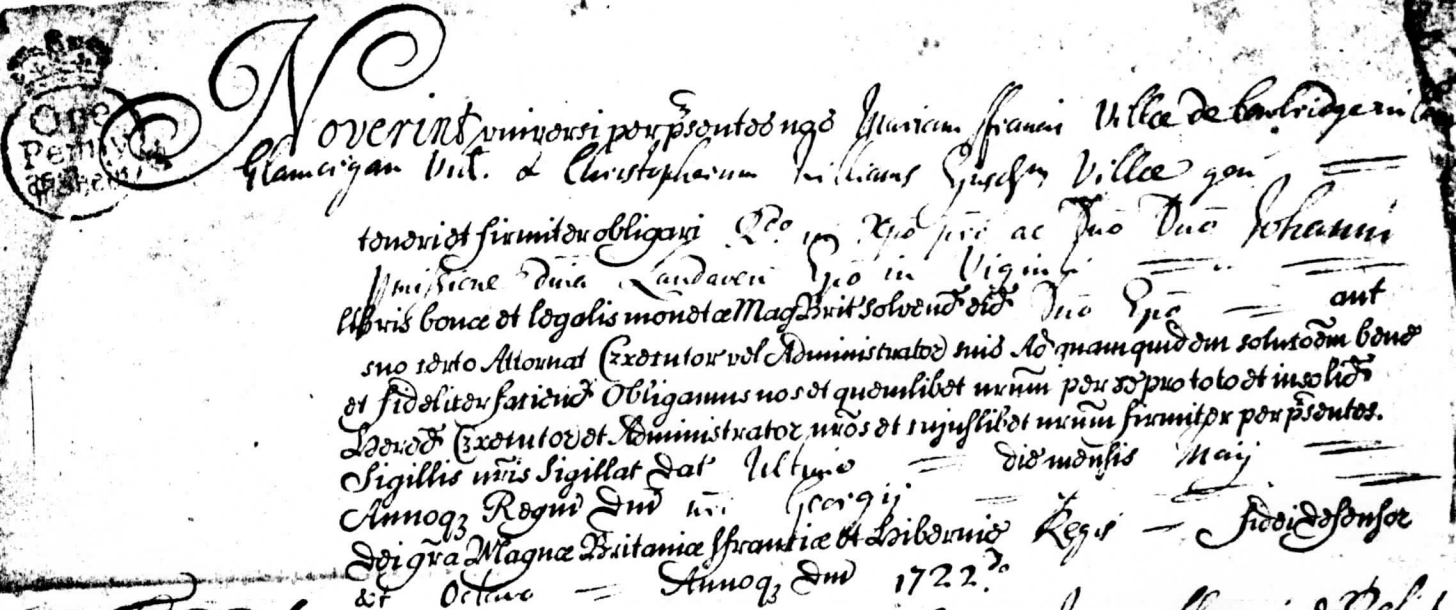 One
Penny
Noverint universi per p̄sentes nos Mariam ffrancis Villæ de
Glamorgan Vid. & Christopherum Williams Villæ gen
teneri et firmiter obligari Rdo in Xpo ac Dno Dno Johanni
dīna Landaven Epō in Viginti
libris bonæ et legalis monetæ Mag Brit solvend eid Dno Epō aut
suo certo Attornat Executor vel Administrator suis Ad quam quidem soluc̄oem bene
et fideliter faciend Obligamus nos et quemlibet nr̄um per se pro toto et in solid
Hered Executor et Administrator nr̄os et cujuslibet nr̄um firmiter per p̄sentes.
Sigillis nr̄is Sigillat Dat Ultimo die mensis Maij
Annoq Regni Dni nri Georgij
Dei gr̄a Magnæ Britaniæ ffranciæ et Hiberniæ Regis fidei defensor
&c Octavo Annoq Dni 1722do